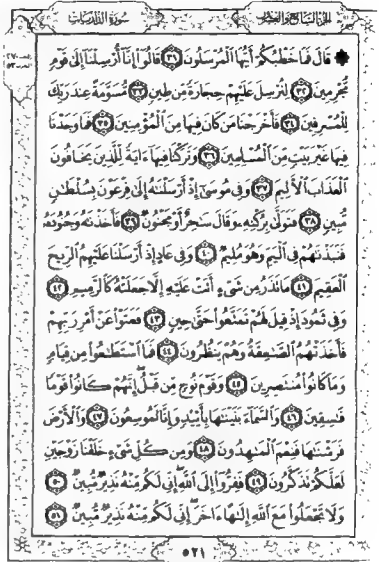 الجزء السابع والعشرون سورة الذاريات
۞ قَالَ فَمَا خَطْبُكُمْ أَيُّهَا الْمُرْسَلُونَ ٣١ قَالُوا إِنَّا أُرْسِلْنَا إِلَىٰ قَوْمٍ
مُّجْرِمِينَ ٣٢ لِنُرْسِلَ عَلَيْهِمْ حِجَارَةً مِّن طِينٍ ٣٣ مُّسَوَّمَةً عِندَ رَبِّكَ
لِلْمُسْرِفِينَ ٣٤ فَأَخْرَجْنَا مَن كَانَ فِيهَا مِنَ الْمُؤْمِنِينَ ٣٥ فَمَا وَجَدْنَا
فِيهَا غَيْرَ بَيْتٍ مِّنَ الْمُسْلِمِينَ ٣٦ وَتَرَكْنَا فِيهَا ءَايَةً لِّلَّذِينَ يَخَافُونَ
الْعَذَابَ الْأَلِيمَ ٣٧ وَفِي مُوسَىٰ إِذْ أَرْسَلْنَٰهُ إِلَىٰ فِرْعَوْنَ بِسُلْطَٰنٍ
مُّبِينٍ ٣٨ فَتَوَلَّىٰ بِرُكْنِهِۦ وَقَالَ سَٰحِرٌ أَوْ مَجْنُونٌ ٣٩ فَأَخَذْنَٰهُ وَجُنُودَهُۥ
فَنَبَذْنَٰهُمْ فِي الْيَمِّ وَهُوَ مُلِيمٌ ٤٠ وَفِي عَادٍ إِذْ أَرْسَلْنَا عَلَيْهِمُ الرِّيحَ
الْعَقِيمَ ٤١ مَا تَذَرُ مِن شَيْءٍ أَتَتْ عَلَيْهِ إِلَّا جَعَلَتْهُ كَالرَّمِيمِ ٤٢
وَفِي ثَمُودَ إِذْ قِيلَ لَهُمْ تَمَتَّعُوا حَتَّىٰ حِينٍ ٤٣ فَعَتَوْا عَنْ أَمْرِ رَبِّهِمْ
فَأَخَذَتْهُمُ الصَّٰعِقَةُ وَهُمْ يَنظُرُونَ ٤٤ فَمَا اسْتَطَٰعُوا مِن قِيَامٍ
وَمَا كَانُوا مُنتَصِرِينَ ٤٥ وَقَوْمَ نُوحٍ مِّن قَبْلُ إِنَّهُمْ كَانُوا قَوْمًا
فَٰسِقِينَ ٤٦ وَالسَّمَاءَ بَنَيْنَٰهَا بِأَيْيْدٍ وَإِنَّا لَمُوسِعُونَ ٤٧ وَالْأَرْضَ
فَرَشْنَٰهَا فَنِعْمَ الْمَٰهِدُونَ ٤٨ وَمِن كُلِّ شَيْءٍ خَلَقْنَا زَوْجَيْنِ
لَعَلَّكُمْ تَذَكَّرُونَ ٤٩ فَفِرُّوا إِلَى اللَّهِ إِنِّي لَكُم مِّنْهُ نَذِيرٌ مُّبِينٌ ٥٠
وَلَا تَجْعَلُوا مَعَ اللَّهِ إِلَٰهًا ءَاخَرَ إِنِّي لَكُم مِّنْهُ نَذِيرٌ مُّبِينٌ ٥١
٥٢١